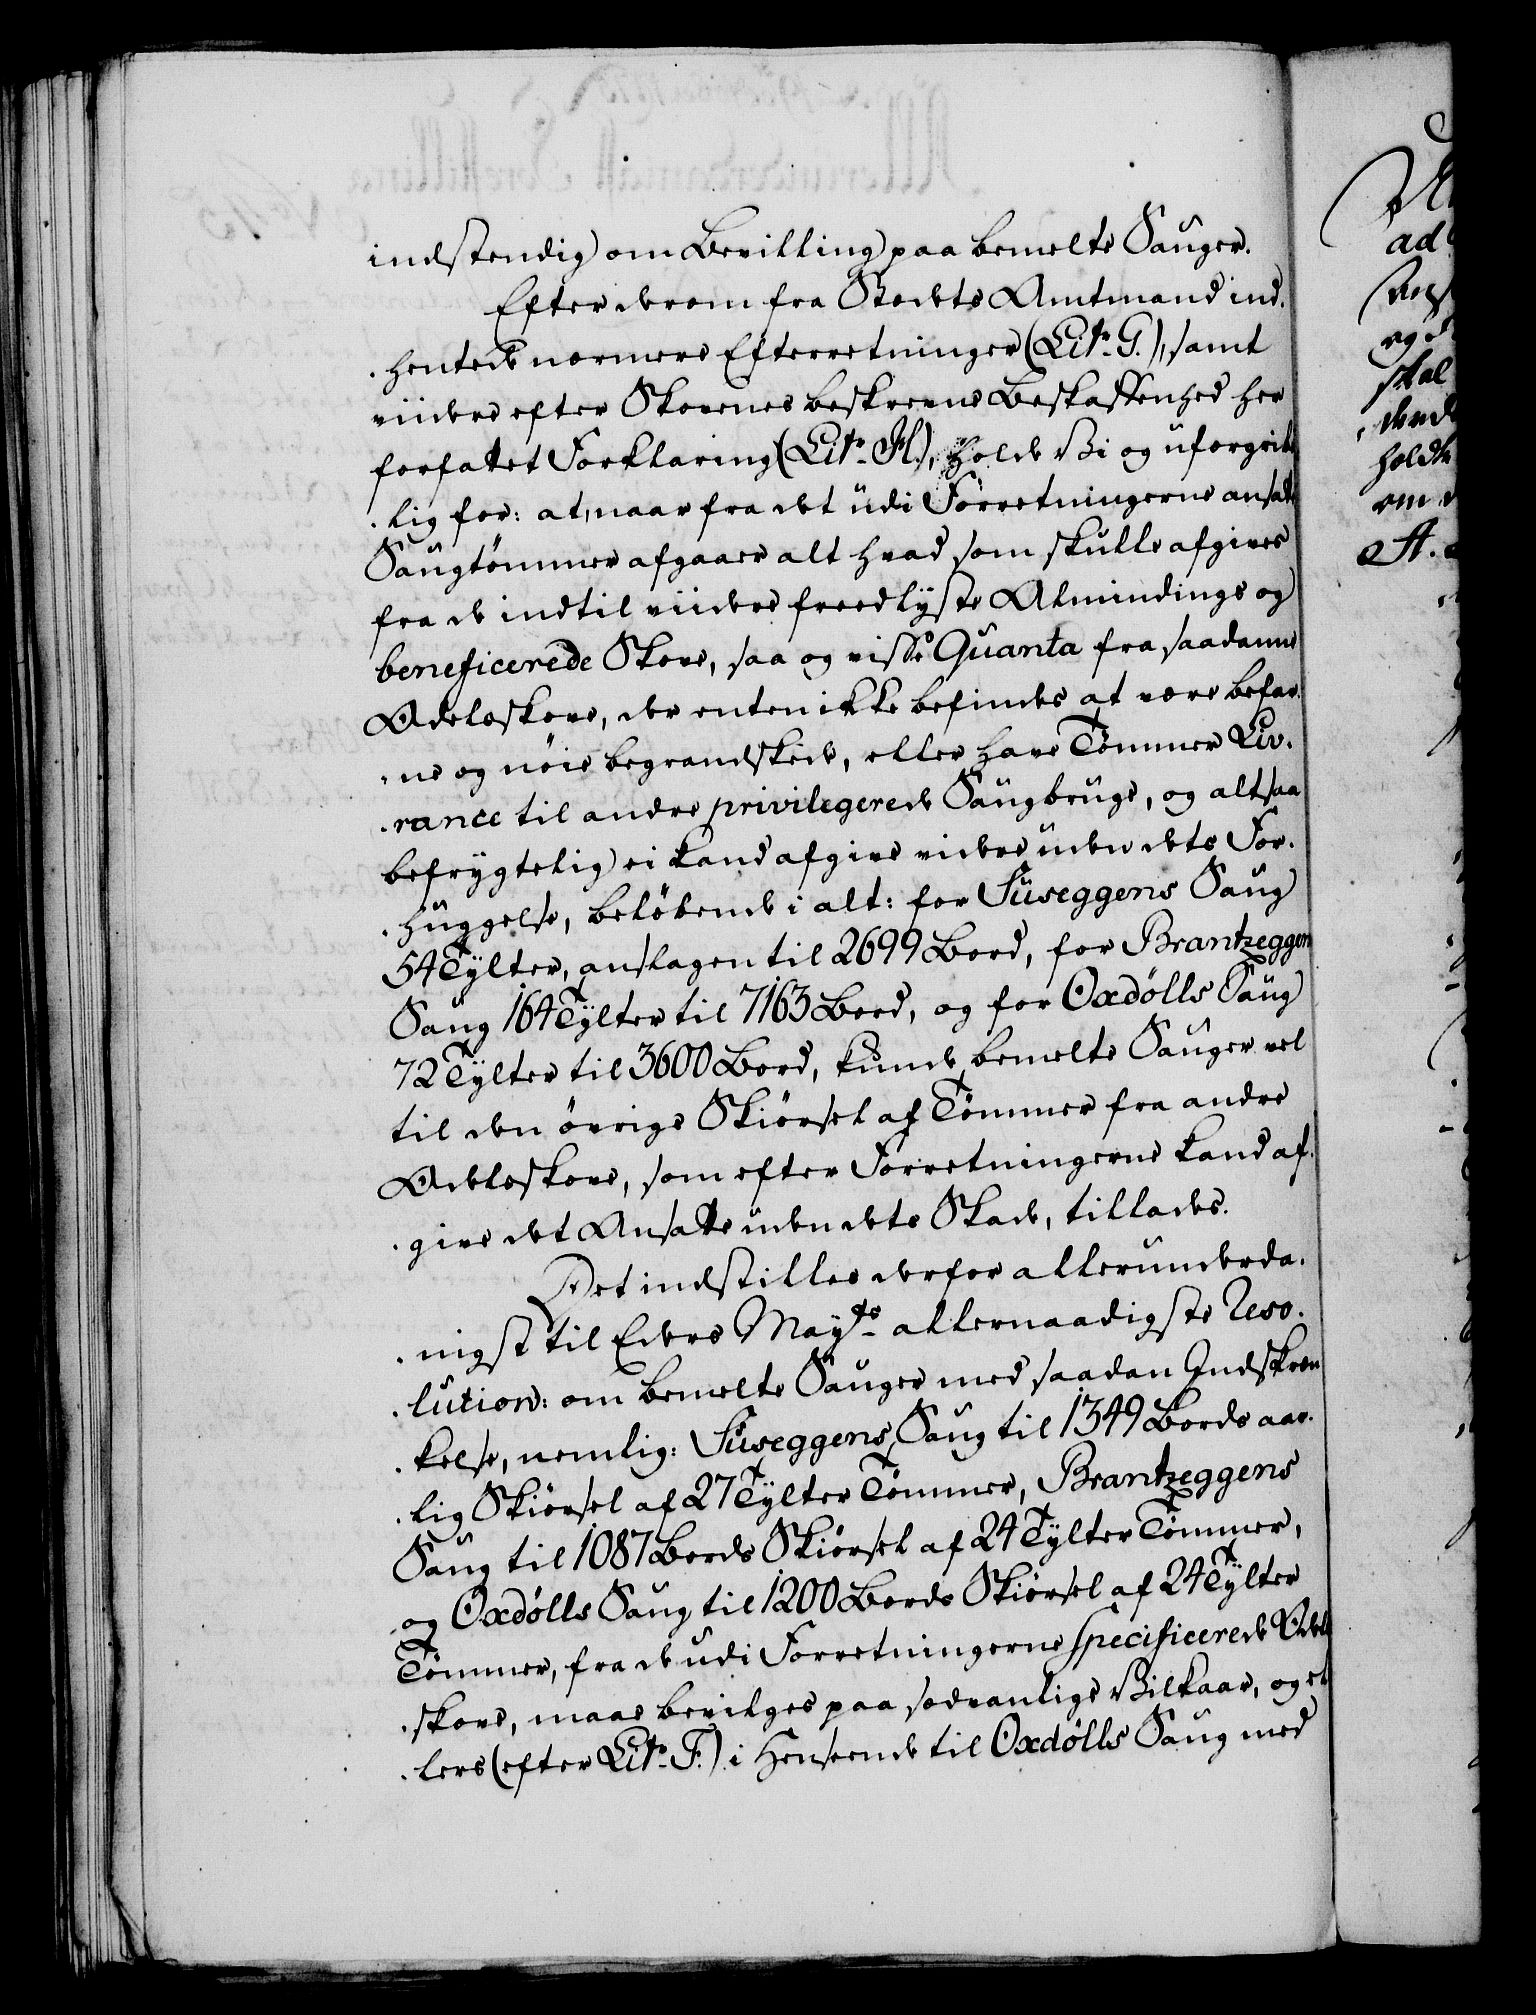 indstendig om Bevilling paa bemelte Sauger.
Efter derom fra Stædets Amtmand ind-
hentede nærmere Efterretninger (Litr. G.), samt
viidere efter Skovenes beskrevne Beskaffenhed her
forfattet Forklaring (Litr. H.), holde Vi og uforgribe
lig for: at, naar fra det udi Forretningerne ansatte
Saugtømmer afgaaer alt hvad som skulle afgives
fra de indtil viidere freedlyste Alminding- og
beneficerede Skove, saa og visse Quanta fra saadanne
Odelsskove, der enten ikke befindes at være befar-
ne og nøie begrandskede, eller have Tømmer Liv-
rance til andre privilegerede Saugbruge, og altsaa
befrygtelig ei kand afgive videre uden dets For-
huggelse, beløbende i alt: for Suseggens Saug
54 Tylter, anslagen til 2699 Bord, for Brantzeggen
Saug 164 Tylter til 7163 Bord, og for Oxdølls Saug
72 Tylter til 3600 Bord, kunde bemelte Sauger vel
til den øvrige Skiørsel af Tømmer fra andre
Odelsskove, som efter Forretningerne kand af-
give det Ansatte uden dets Skade, tillades.
Det indstilles derfor allerunderda-
nigst til Eders Mayts. allernaadigste Reso-
lution: om bemelte Sauger med saadan Indskræn
kelse, nemlig: Suseggens Saug til 1349 Bords aar-
lig Skiørsel af 27 Tylter Tømmer, Brantzeggens
Saug til 1087 Bords Skiørsel af 24 Tylter Tømmer,
og Oxdølls Saug til 1200 Bords Skiørsel af 24 Tylter
Tømmer, fra de udi Forretningerne specificerede Odels
skove, maae bevilges paa sædvanlige Vilkaar, og el
lers (efter Litr. F.) i Henseende til Oxdølls Saug med
ad
og
skal
dend
holdte
om
A.